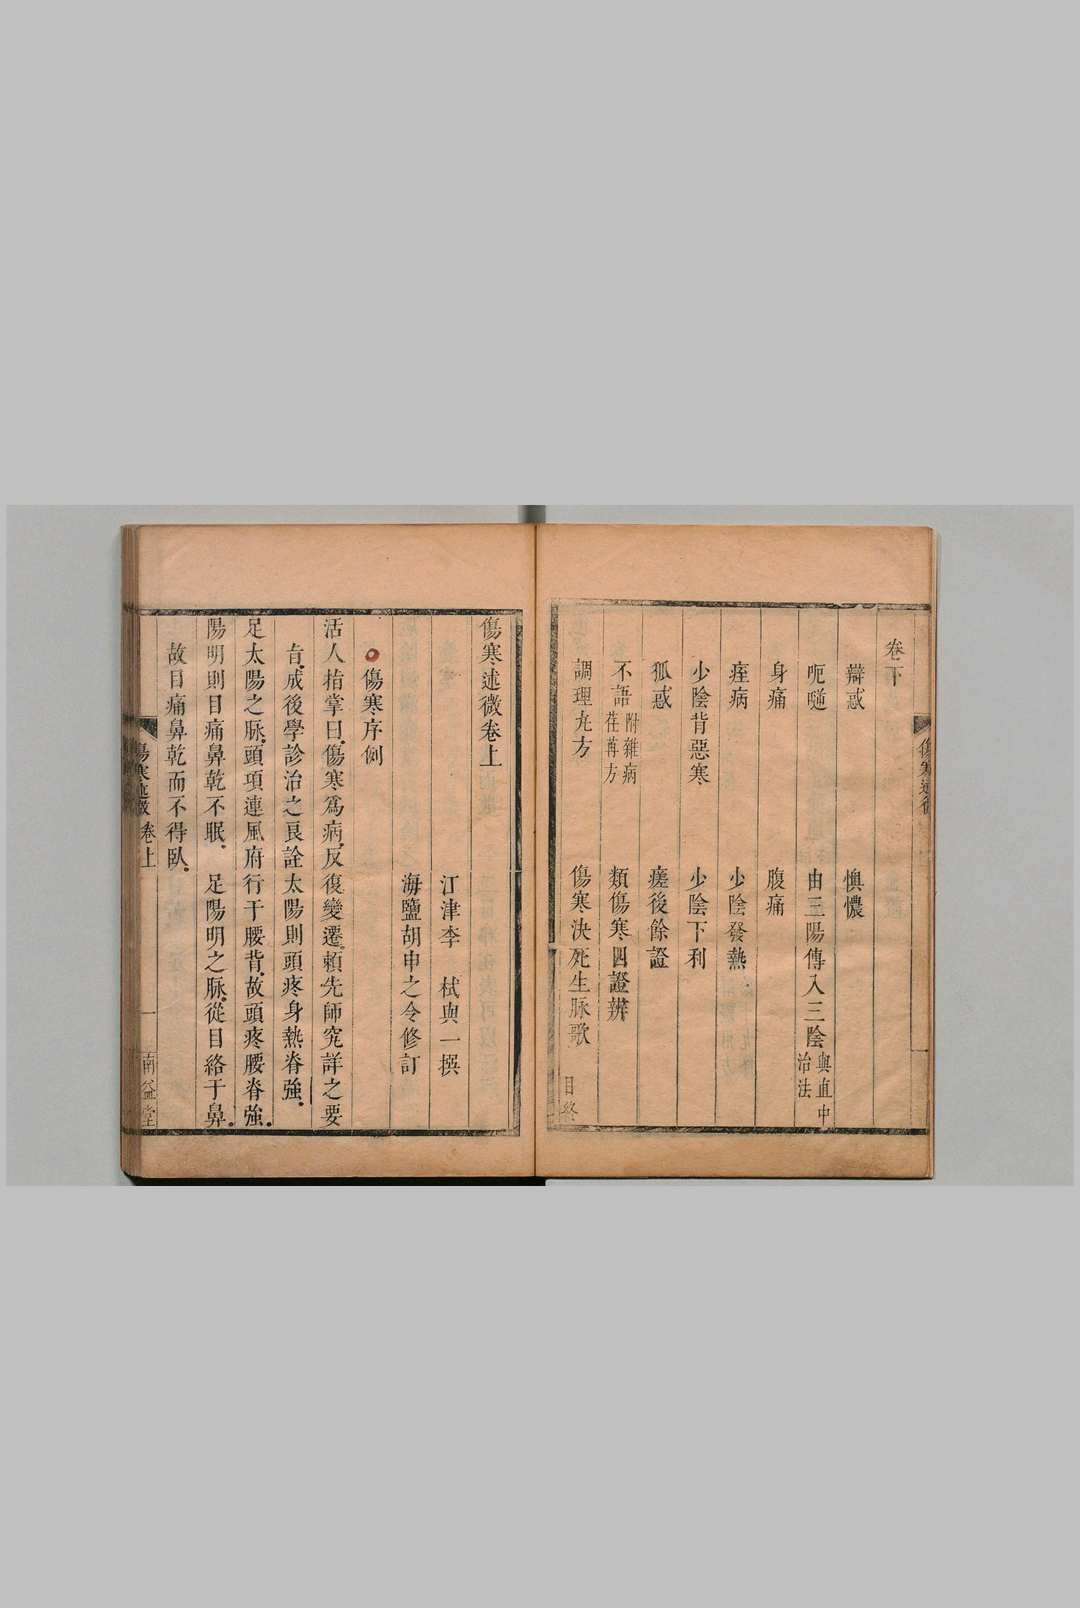 卷下
辯惑 懊憹
呃噦 由三陽傳入三陰 與直中治法
身痛 腹痛
痓病 少陰發熱
少陰背惡寒 少陰下利
狐惑 瘥後餘證
不語 附雜病荏苒方 類傷寒四證辨
調理九方 傷寒決死生脉歌 目終
傷寒述微
傷寒述微卷上
江津李 栻與一撰
海鹽胡申之令修訂
傷寒序例
活人指掌曰傷寒爲病反復變遷賴先師究詳之要
旨成後學診治之良詮太陽則頭疼身熱脊強
足太陽之脉頭項連風府行于腰背故頭疼腰脊強
陽明則目痛鼻乾不眠 足陽明之脉從目絡于鼻
故目痛鼻乾而不得臥
傷寒述微 卷上 一 南益堂